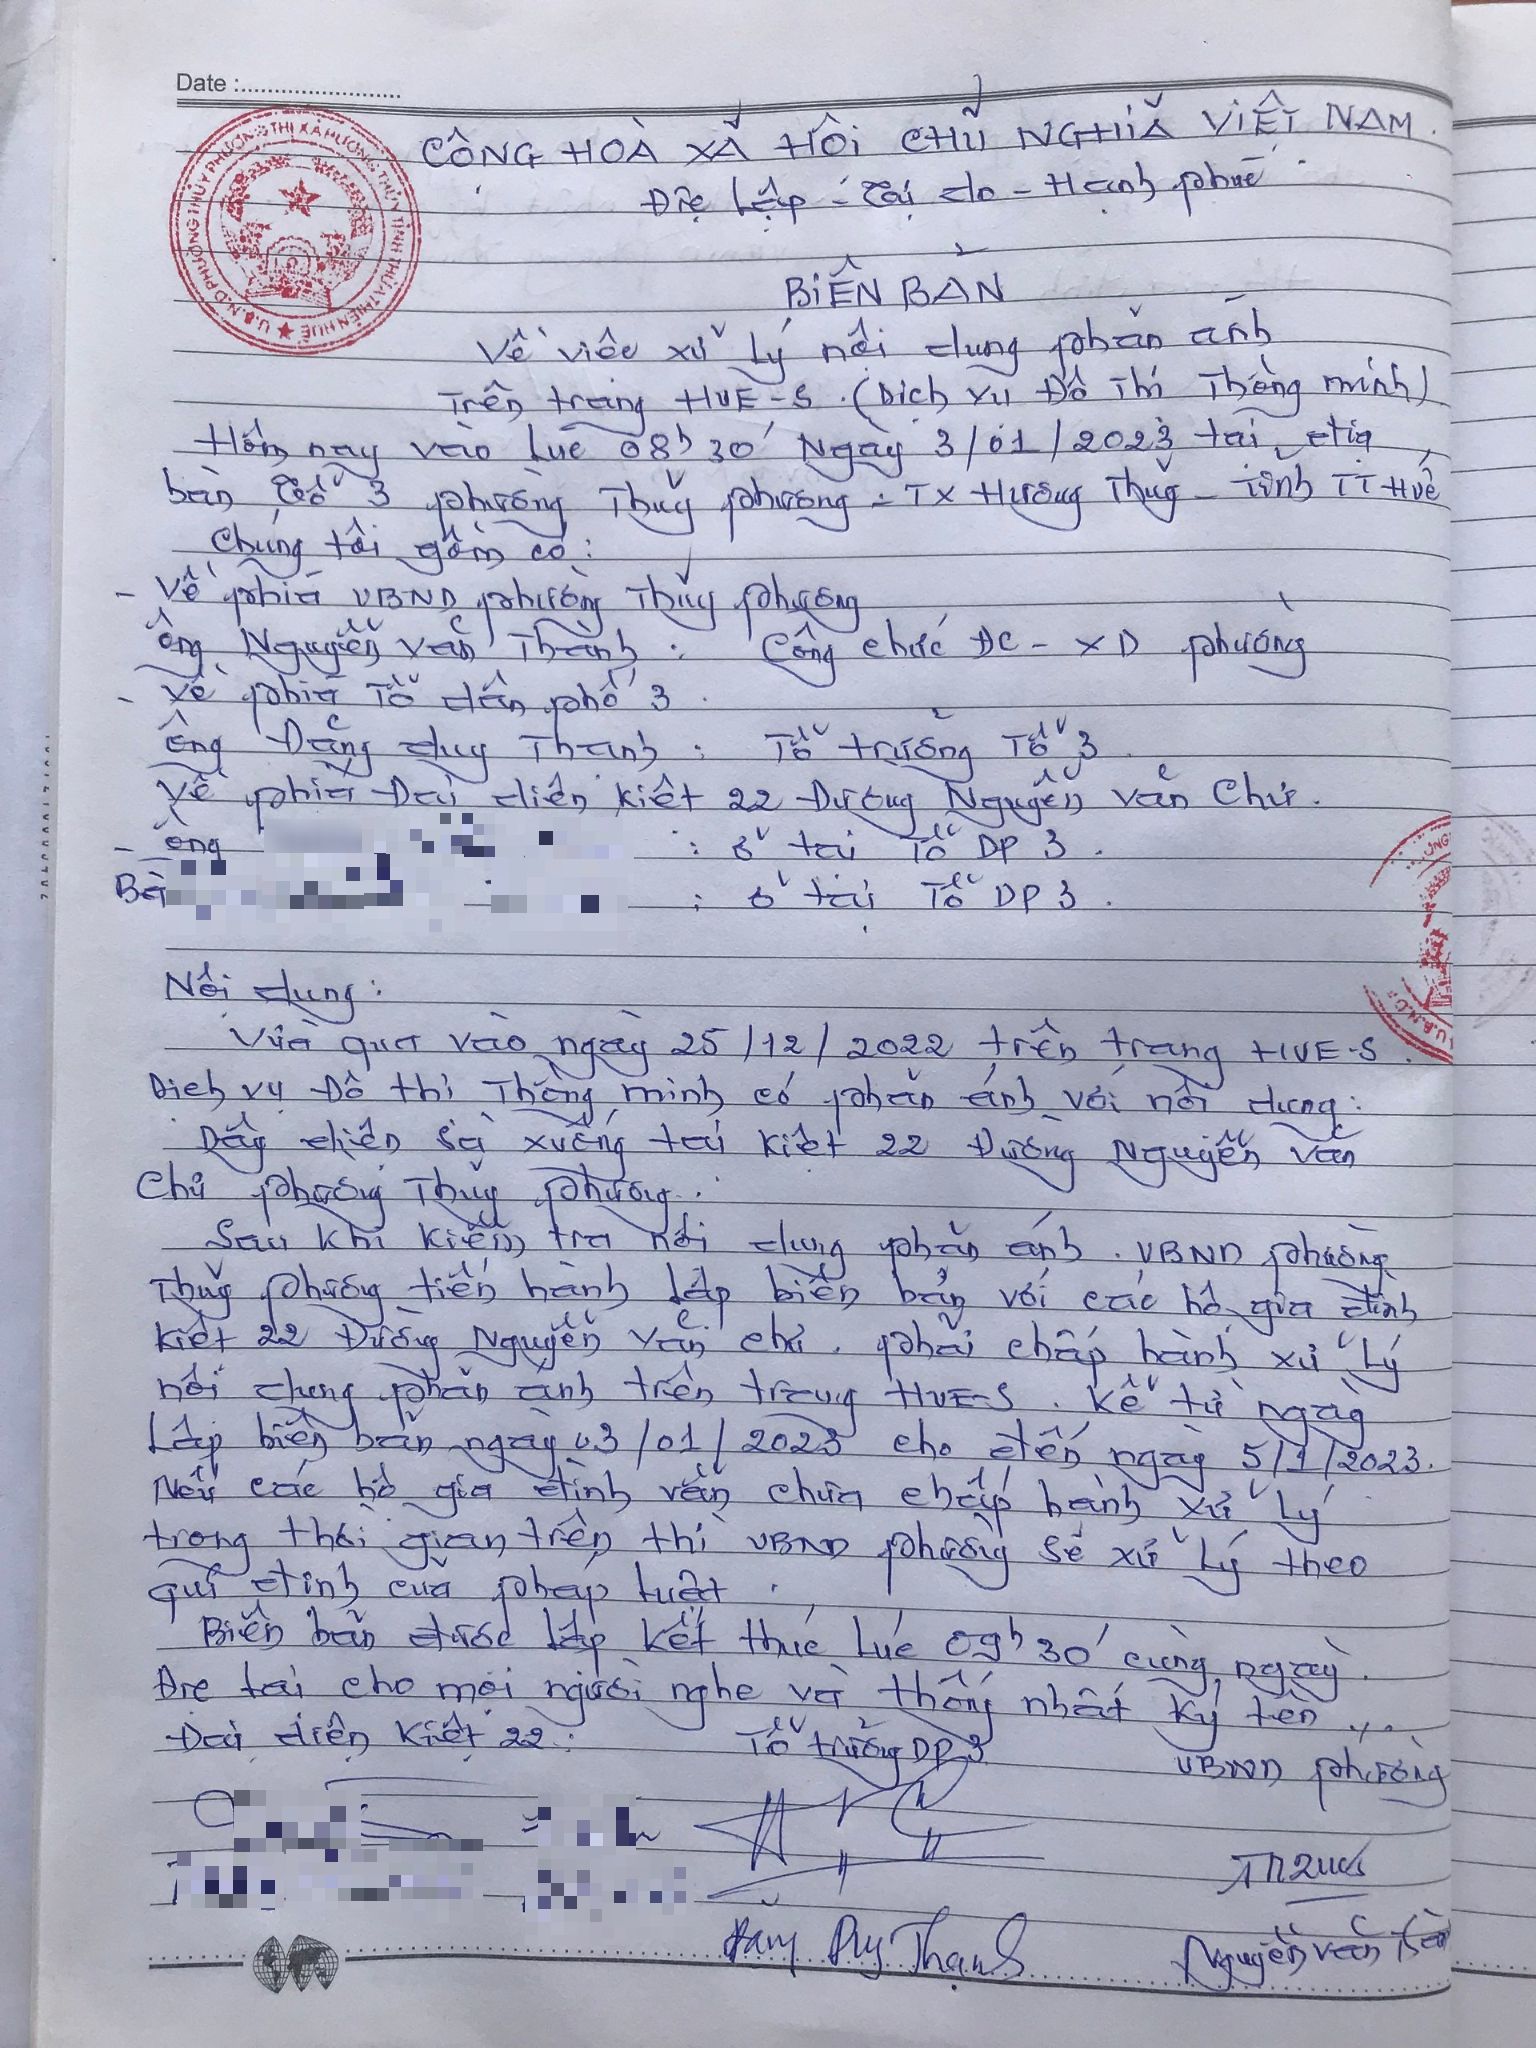 Date :
U.B.N.D PHƯỜNG THỦY PHƯƠNG THỊ XÃ HƯƠNG THỦY TỈNH THỪA THIÊN HUẾ
CỘNG HOÀ XÃ HỘI CHỦ NGHĨA VIỆT NAM.
Độc lập - Tự do - Hạnh phúc
BIÊN BẢN
Về việc xử lý nội dung phản ánh
Trên trang HUE-S. (Dịch vụ Đô Thị Thông minh)
Hôm nay vào lúc 08h30' Ngày 3/01/2023 tại địa
bàn Tổ 3 phường Thuỷ phương - TX Hương Thuỷ - Tỉnh TT Huế
Chúng tôi gồm có:
- Về phía UBND phường Thủy phương
ông Nguyễn Văn Thành : Công chức ĐC - XD phường
- Về phía Tổ dân phố 3.
ông Đặng duy Thạnh : Tổ trưởng Tổ 3
Về phía Đại diện kiệt 22 Đường Nguyễn Văn Chư.
- ông : ở tại Tổ DP 3.
Bà : ở tại Tổ DP 3.
Nội dung:
Vừa qua vào ngày 25/12/2022 trên trang HUE-S.
Dịch vụ Đô thị Thông minh có phản ánh với nội dung:
Dây điện sà xuống tại kiệt 22 Đường Nguyễn Văn
Chư phường Thuỷ phương.
Sau khi kiểm tra nội dung phản ánh. UBND phường
Thuỷ phương tiến hành lập biên bản với các hộ gia đình
kiệt 22 Đường Nguyễn Văn chư. phải chấp hành xử lý
nội dung phản ánh trên trang HUE-S. Kể từ ngày
lập biên bản ngày 03/01/2023 cho đến ngày 5/1/2023.
Nếu các hộ gia đình vẫn chưa chấp hành xử lý
trong thời gian trên thì UBND phường sẽ xử lý theo
quy định của pháp luật.
Biên bản được lập kết thúc lúc 09h30' cùng ngày.
Đọc lại cho mọi người nghe và thống nhất ký tên ...
Đại diện Kiệt 22: Tổ trưởng DP 3 UBND phường
Đặng Duy Thạnh Nguyễn Văn